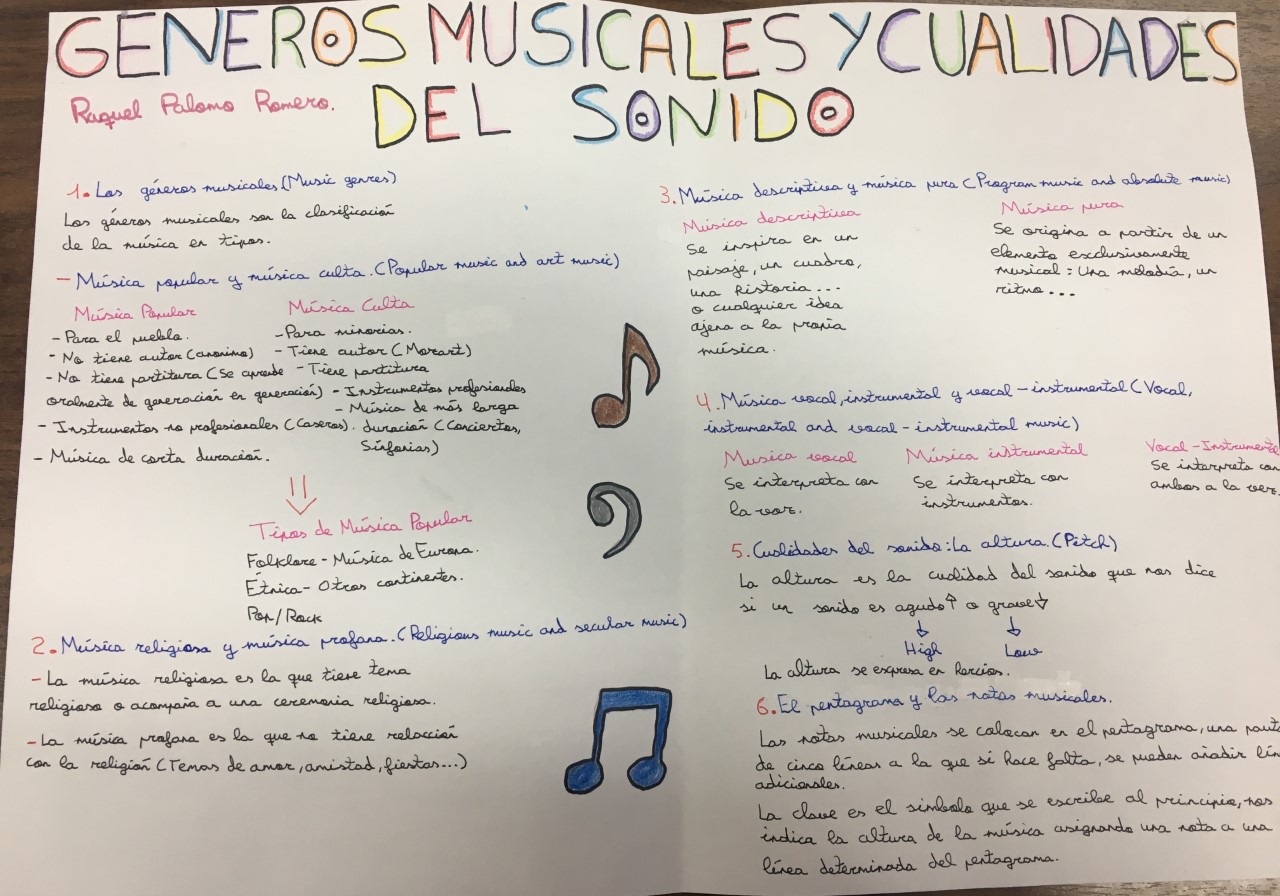 GENEROS MUSICALES Y CUALIDADES
DEL SONIDO
Raquel Palomo Romero.
1. Los géneros musicales (Music genres)
Los géneros musicales son la clasificación
de la música en tipos.
- Música popular y música culta. (Popular music and art music)
Música Popular
- Para el pueblo.
- No tiene autor (anonimo)
- No tiene partitura (Se aprende
oralmente de generación en generación)
- Instrumentos no profesionales (Caseros).
- Música de corta duración.
Música Culta
- Para minorias.
- Tiene autor (Mozart)
- Tiene partitura
- Instrumentos profesionales
- Música de más larga
duración (Conciertos,
Sinfonias)
Tipos de Música Popular
Folklore - Música de Europa.
Étnica - Otros continentes.
Pop/Rock
2. Música religiosa y música profana. (Religious music and secular music)
- La música religiosa es la que tiene tema
religioso o acompaña a una ceremonia religiosa.
- La música profana es la que no tiene relacción
con la religión (Temas de amor, amistad, fiestas...)
3. Música descriptiva y música pura (Program music and absolute music)
Música descriptiva
Se inspira en un
paisaje, un cuadro,
una historia...
o cualquier idea
ajena a la propia
música.
Música pura
Se origina a partir de un
elemento exclusivamente
musical: Una melodía, un
ritmo...
4. Música vocal, instrumental y vocal-instrumental (Vocal,
instrumental and vocal-instrumental music)
Musica vocal
Se interpreta con
la voz.
Música instrumental
Se interpreta con
instrumentos.
Vocal-Instrumental
Se interpreta con
ambos a la vez.
5. Cualidades del sonido: La altura. (Pitch)
La altura es la cualidad del sonido que nos dice
si un sonido es agudo↑ o grave↓
High Low
La altura se expresa en hercios.
6. El pentagrama y las notas musicales.
Las notas musicales se colocan en el pentagrama, una pauta
de cinco líneas a la que si hace falta, se pueden añadir lín
adicionales.
La clave es el simbolo que se escribe al principio, nos
indica la altura de la música asignando una nota a una
línea determinada del pentagrama.